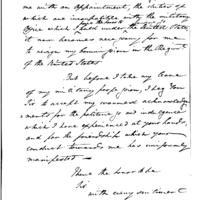 me with an appointment, the duties of
which are incompatible with the military
Office which I held under the United States,
it now becomes necessary for me
to resign my commission in the
of the United States
But before I take my leave
of my military profession, I beg you
Sir to accept my warmest acknowledg-
ments for the politeness and indulgence
which I have experienced at your hands,
and for the friendship which your
conduct towards me has uniformly
manifested
I have the honor to be
Sir
with every sentiment